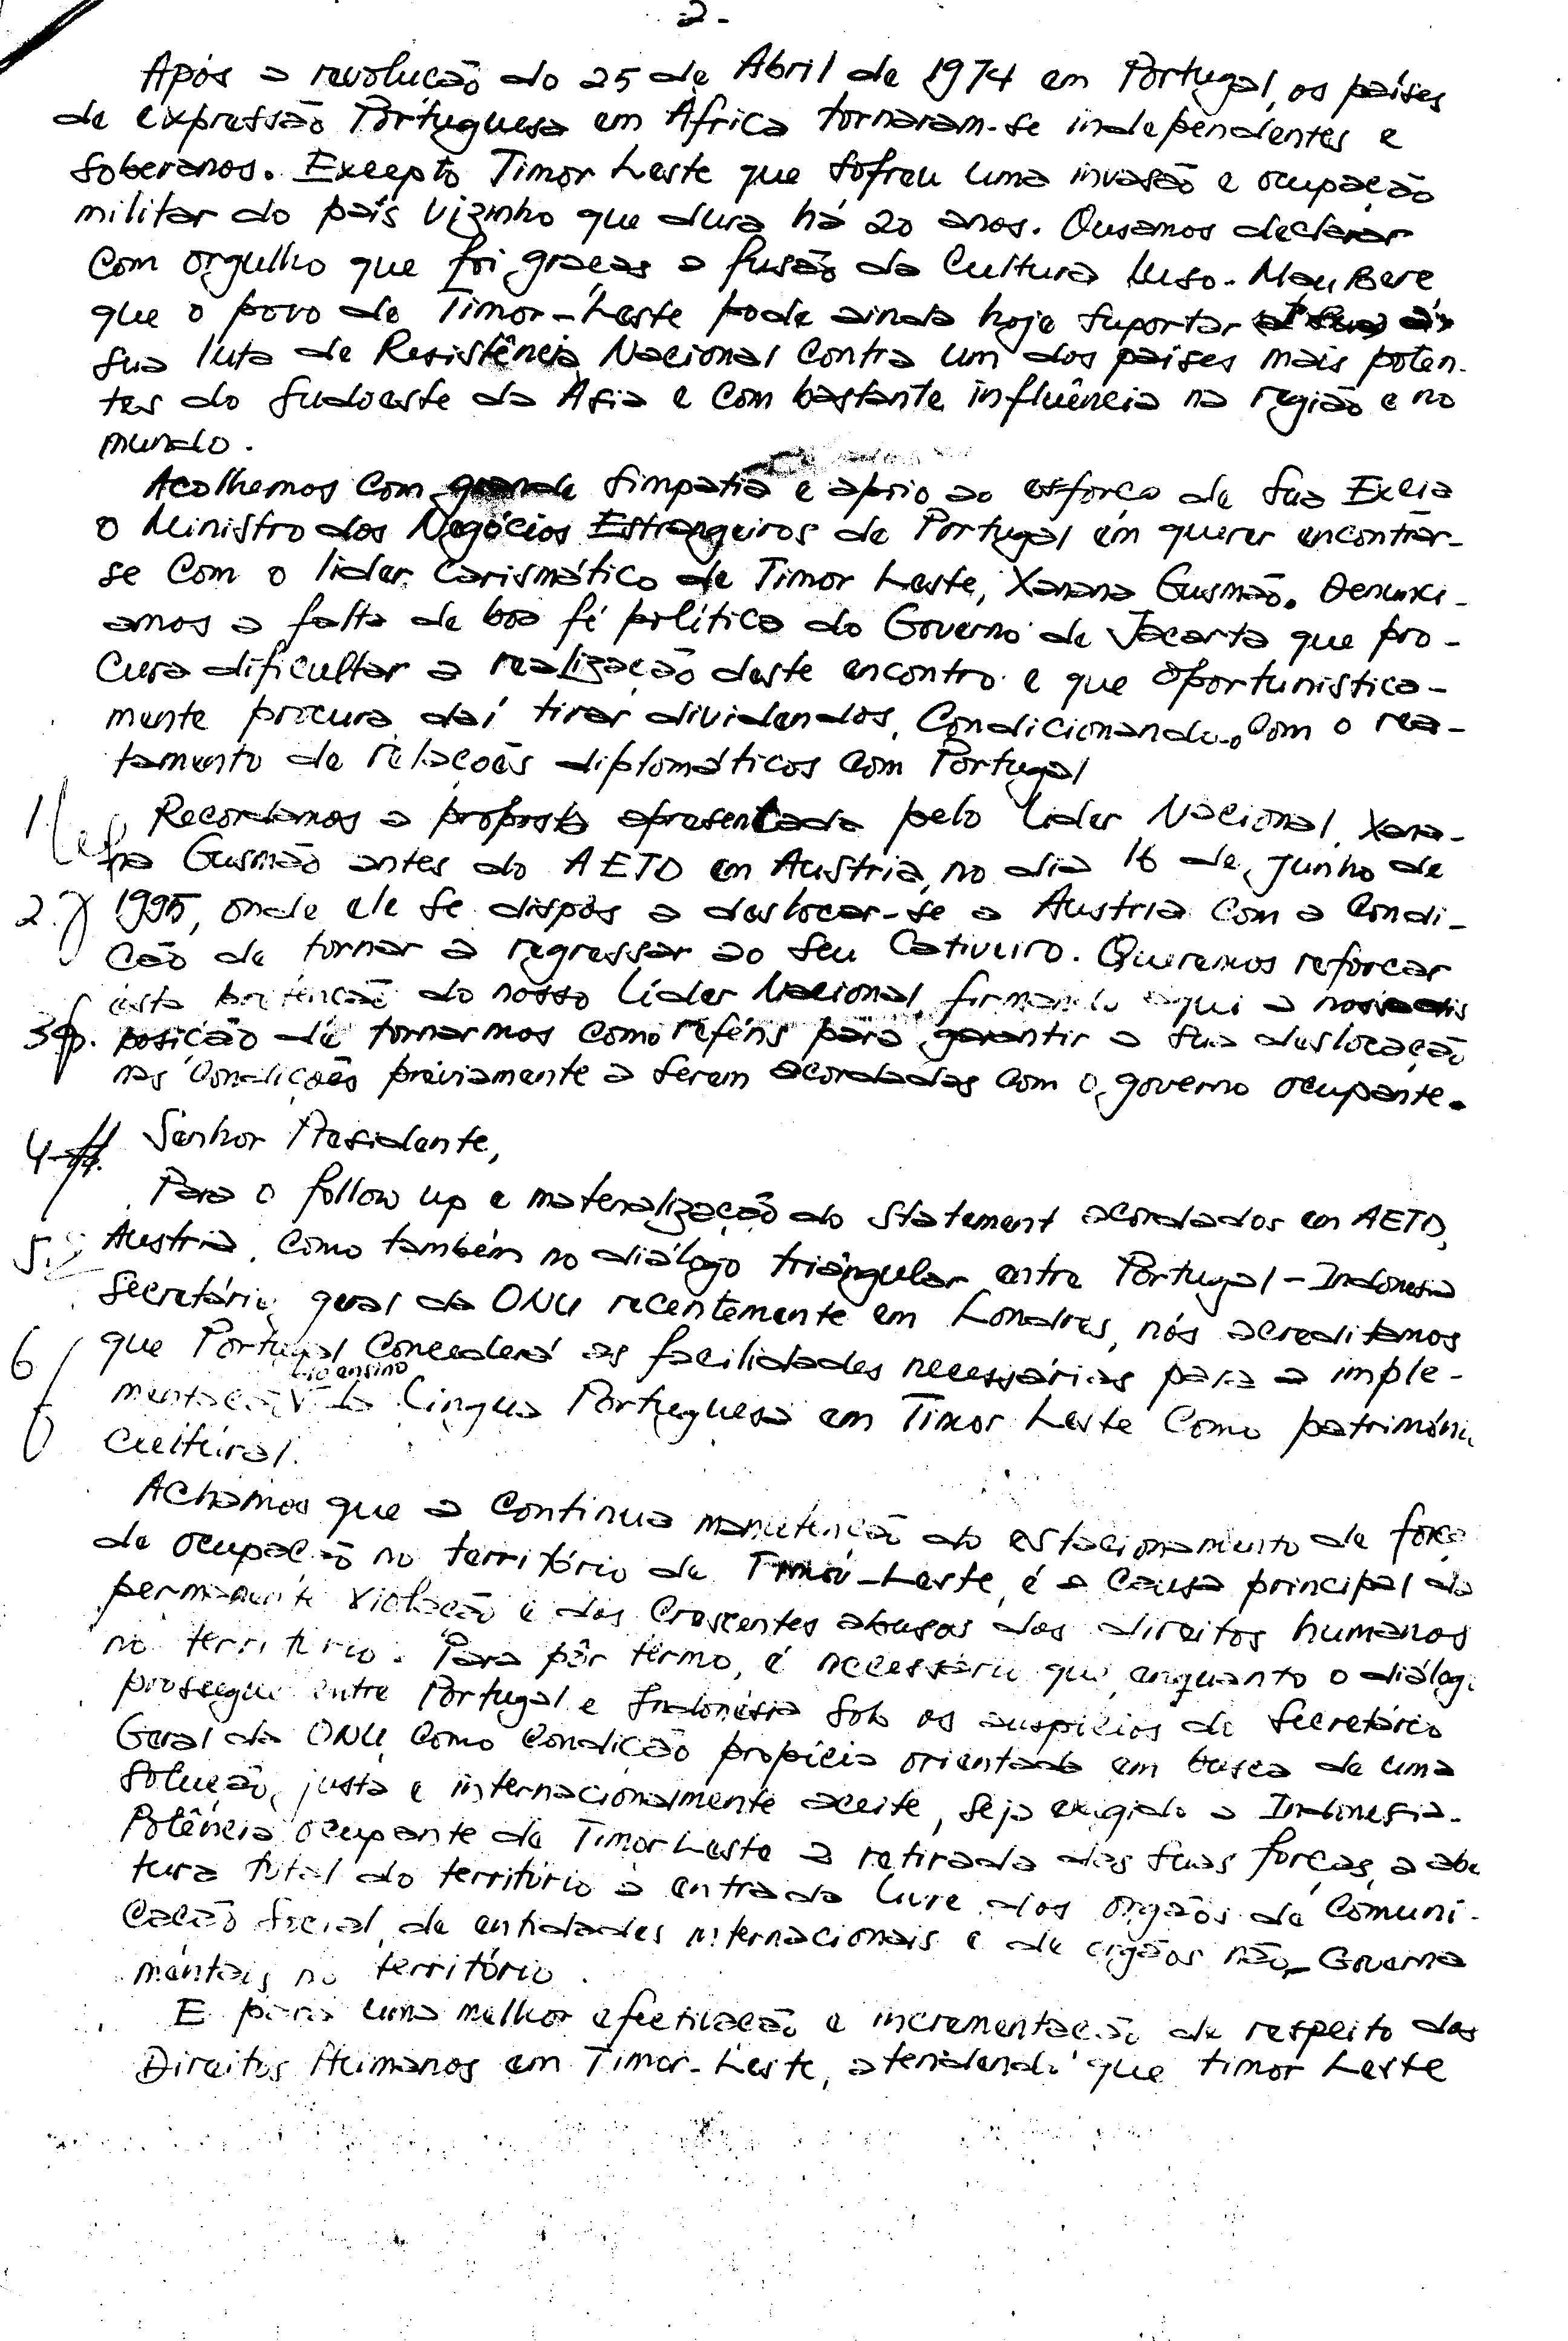 2-
Após a revolução do 25 de Abril de 1974 em Portugal, os países
de expressão Portuguesa em África tornaram-se independentes e
soberanos. Excepto Timor Leste que sofreu uma invasão e ocupação
militar do país vizinho que dura há 20 anos. Ousamos declarar
com orgulho que foi graças a fusão da Cultura Luso-Maubere
que o povo de Timor-Leste pode ainda hoje suportar
sua luta de Resistência Nacional contra um dos países mais poten-
tes do sudoeste da Asia e com bastante influência na região e no
mundo.
Acolhemos com grande simpatia e apoio ao esforço de Sua Excia
o Ministro dos Negócios Estrangeiros de Portugal em querer encontrar-
se com o líder carismático de Timor Leste, Xanana Gusmão. Denunci-
amos a falta de boa fé político do Governo de Jacarta que pro-
cura dificultar a realização deste encontro e que oportunistica-
mente procura daí tirar dividendos, condicionando-o com o rea-
tamento de relações diplomáticos com Portugal
1. Recordamos a proposta apresentada pelo Líder Nacional, Xana-
na Gusmão antes do AETD em Austria, no dia 16 de Junho de
2. 1995, onde ele se dispôs a deslocar-se a Austria com a condi-
ção de tornar a regressar ao seu Cativeiro. Queremos reforçar
esta pretenção do nosso Líder Nacional, firmando aqui a nossa dis
3. posição de tornarmos como reféns para garantir a sua deslocação
nas condições préviamente a serem acordadas com o governo ocupante.
4. Senhor Presidente,
Para o follow up e materialização do Statement acordados em AETD,
5. Austria, como também no diálogo triângular entre Portugal-Indonesia
Secretário geral da ONU recentemente em Londres, nós acreditamos
6 que Portugal concederá as facilidades necessárias para a imple-
do ensino
mentação da Língua Portuguesa em Timor Leste como património
Cultural.
Achamos que a continua manutenção do estacionamento de força
de ocupação no território de Timor-Leste, é a causa principal da
permanente violação e dos crescentes abusos dos direitos humanos
no territorio. Para pôr termo, é necessário que, enquanto o diálogo
prossegue entre Portugal e Indonésia sob os auspícios do Secretário
Geral da ONU, como condição propícia orientada em busca de uma
solução, justa e internacionalmente aceite, seja exigido a Indonesia-
Potência ocupante de Timor Leste a retirada das suas forças, a aber
tura total do território à entrada livre dos orgãos de Comuni-
cação Social, de entidades internacionais e de orgãos não-Governa
mentais no território.
E para uma melhor efectivação e incrementação de respeito dos
Direitos Humanos em Timor-Leste, atendendo que timor Leste